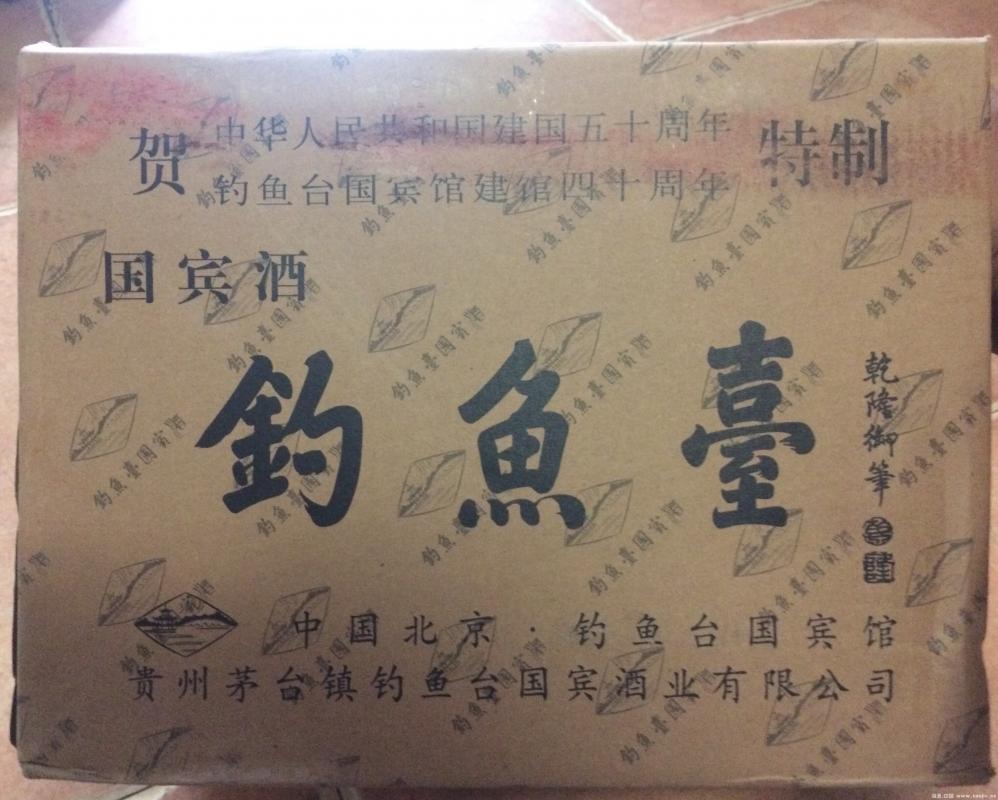 贺 中华人民共和国建国五十周年 特制
钓鱼台国宾馆建馆四十周年
国宾酒
釣魚臺
乾隆御筆
中国北京·钓鱼台国宾馆
贵州茅台镇钓鱼台国宾酒业有限公司